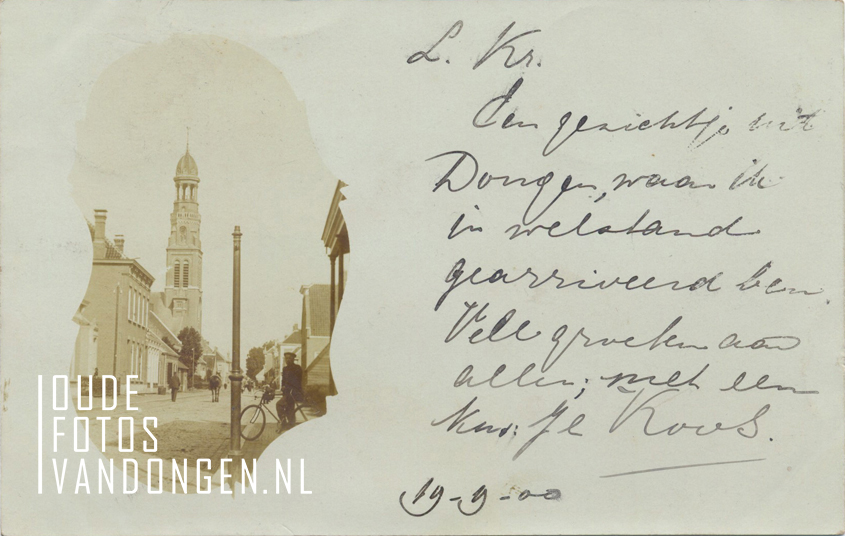 L. Kr.
Een gezichtje uit
Dongen, waar ik
in welstand
gearriveerd ben.
Vele groeten aan
allen; met een
kus: Je Koos.
19-9-00
OUDE
FOTOS
VANDONGEN.NL